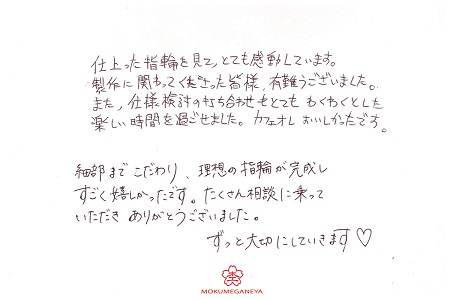 仕上った指輪を見て、とても感動しています。
製作に関わってくださった皆様、有難うございました。
また、仕様検討の打ち合わせもとても わくわくとした
楽しい時間を過ごせました。カフェオレ おいしかったです。
細部まで こだわり、理想の指輪が完成し
すごく嬉しかったです。たくさん相談に乗って
いただき ありがとうございました。
ずっと大切にしていきます♡
MOKUMEGANEYA